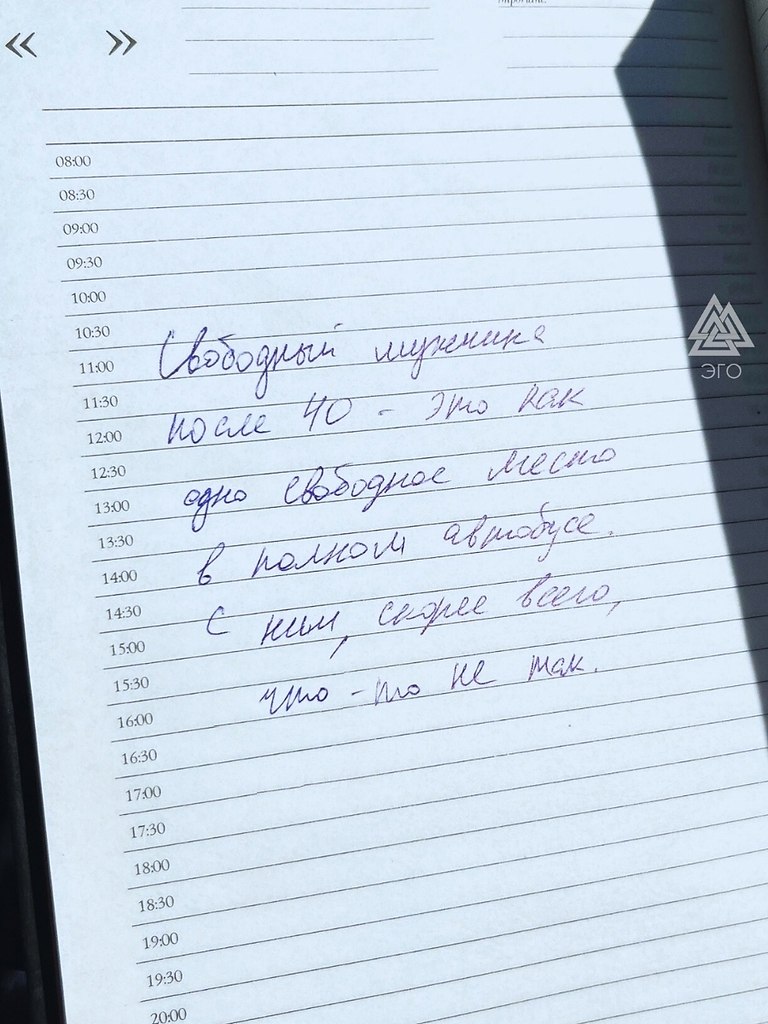 « »
08:00
08:30
09:00
09:30
10:00
10:30
11:00
11:30
12:00
12:30
13:00
13:30
14:00
14:30
15:00
15:30
16:00
16:30
17:00
17:30
18:00
18:30
19:00
19:30
20:00
Свободный мужчина
после 40 - это как
одно свободное место
в полном автобусе.
С ним, скорее всего,
что-то не так.
ЭГО